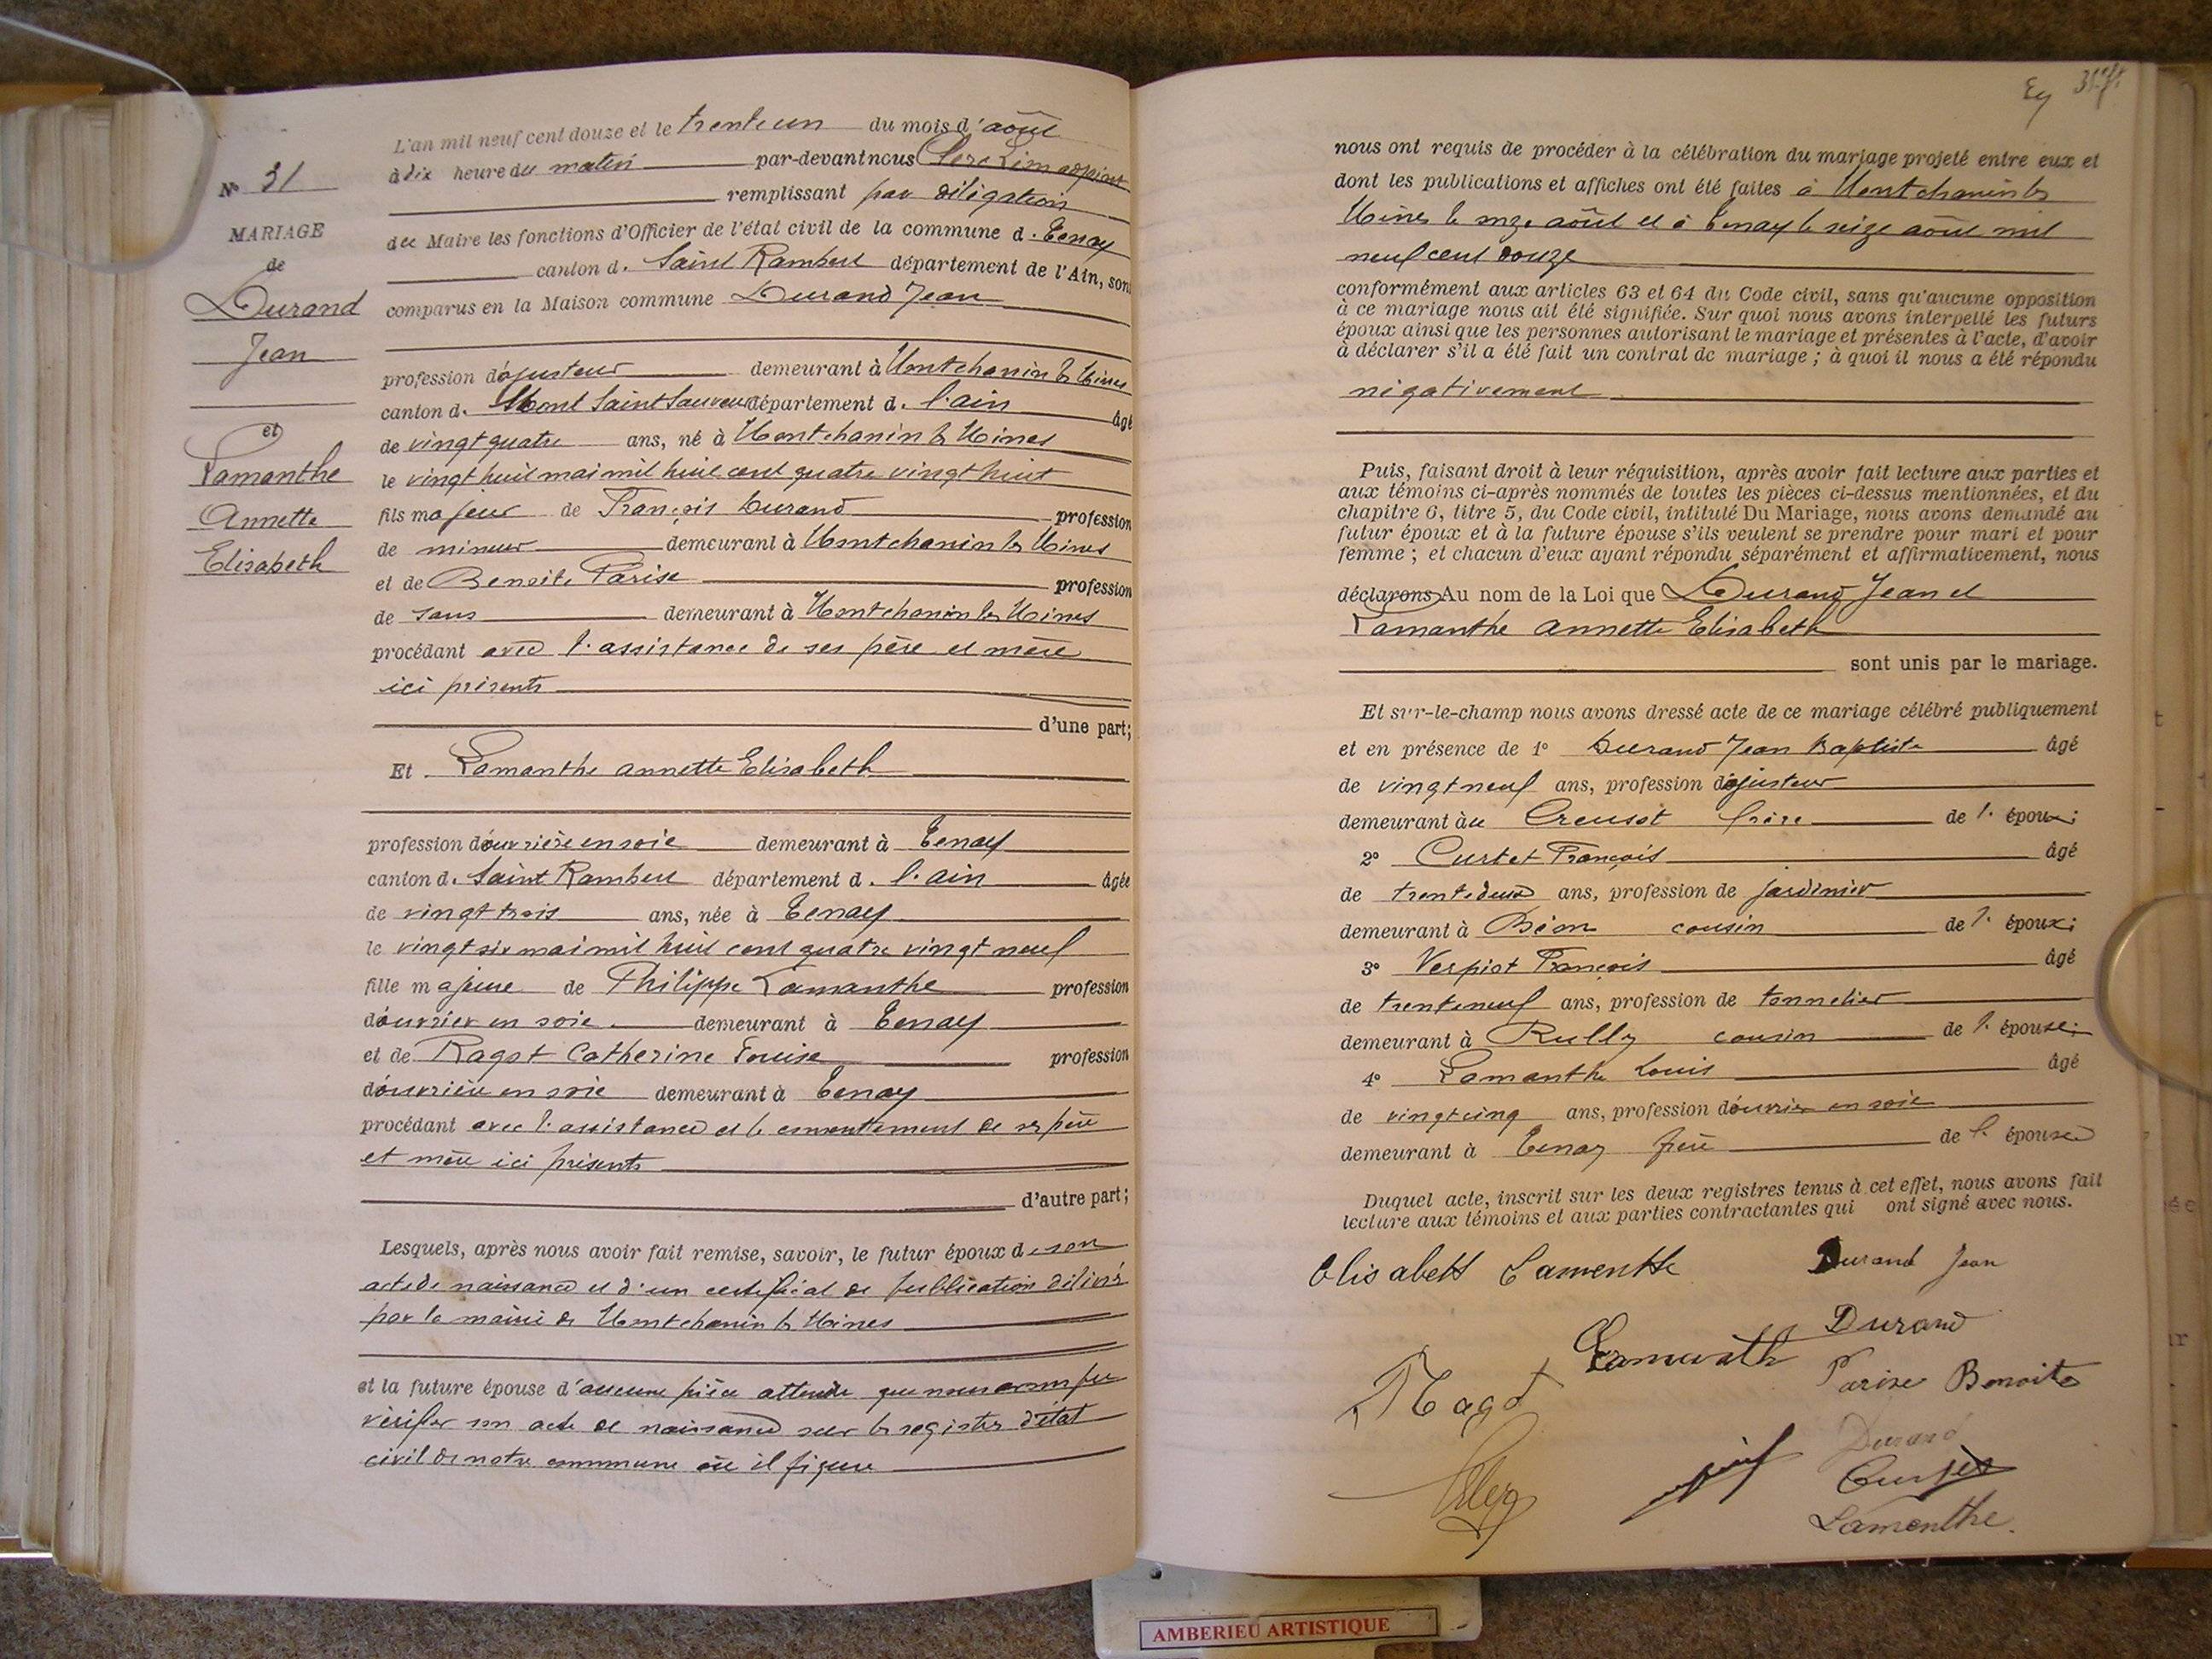 L'an mil neuf cent douze et le trente un du mois d'août
à dix heure du matin par-devant nous adjoint
remplissant par délégation
du Maire les fonctions d'Officier de l'état civil de la commune d. Tenay
canton d. Saint Rambert département de l'Ain, sont
comparus en la Maison commune Durand Jean
profession d'ajusteur demeurant à Montchanin les Mines
canton d. Mont Saint Sauveur département d. l'ain âgé
de vingt quatre ans, né à Montchanin les Mines
le vingt huit mai mil huit cent quatre vingt huit
fils majeur de François Durand profession
de mineur demeurant à Montchanin les Mines
et de Benoite Parise profession
de sans demeurant à Montchanin les Mines
procédant avec l'assistance de ses père et mère
ici présents
d'une part;
Et Lamanthe Annette Elisabeth
profession d'ouvrière en soie demeurant à Tenay
canton d. Saint Rambert département d. l'ain âgée
de vingt trois ans, née à Tenay
le vingt six mai mil huit cent quatre vingt neuf
fille majeure de Philippe Lamanthe profession
d'ouvrier en soie demeurant à Tenay
et de Ragot Catherine Louise profession
d'ouvrière en soie demeurant à Tenay
procédant avec l'assistance et le consentement de ses père
et mère ici présents
d'autre part;
Lesquels, après nous avoir fait remise, savoir, le futur époux de son
acte de naissance et d'un certificat de publication délivré
par la mairie de Montchanin les Mines
et la future épouse d'aucune pièce attendu que nous avons pu
vérifier son acte de naissance sur les registres d'état
civil de notre commune où il figure
N° 31
MARIAGE
de
Durand
Jean
et
Lamanthe
Annette
Elisabeth
nous ont requis de procéder à la célébration du mariage projeté entre eux et
dont les publications et affiches ont été faites à Montchanin les
Mines le onze août et à Tenay le seize août mil
neuf cent douze
conformément aux articles 63 et 64 du Code civil, sans qu'aucune opposition
à ce mariage nous ait été signifiée. Sur quoi nous avons interpellé les futurs
époux ainsi que les personnes autorisant le mariage et présentes à l'acte, d'avoir
à déclarer s'il a été fait un contrat de mariage ; à quoi il nous a été répondu
négativement
Puis, faisant droit à leur réquisition, après avoir fait lecture aux parties et
aux témoins ci-après nommés de toutes les pièces ci-dessus mentionnées, et du
chapitre 6, titre 5, du Code civil, intitulé Du Mariage, nous avons demandé au
futur époux et à la future épouse s'ils veulent se prendre pour mari et pour
femme ; et chacun d'eux ayant répondu séparément et affirmativement, nous
déclarons Au nom de la Loi que Durand Jean et
Lamanthe Annette Elisabeth
sont unis par le mariage.
Et sur-le-champ nous avons dressé acte de ce mariage célébré publiquement
et en présence de 1° Durand Jean Baptiste âgé
de vingt neuf ans, profession d'ajusteur
demeurant au Creusot frère de l. époux;
2° Curtet François âgé
de trente deux ans, profession de jardinier
demeurant à Béon cousin de l. époux;
3° Verpiot François âgé
de trente neuf ans, profession de tonnelier
demeurant à Rully cousin de l. épouse;
4° Lamanthe Louis âgé
de vingt cinq ans, profession d'ouvrier en soie
demeurant à Tenay frère de l. épouse
Duquel acte, inscrit sur les deux registres tenus à cet effet, nous avons fait
lecture aux témoins et aux parties contractantes qui ont signé avec nous.
Elisabett Lamenthe Durand Jean
Durand
Ragot Parise Benoite
Durand
Lamenthe.
AMBERIEU ARTISTIQUE